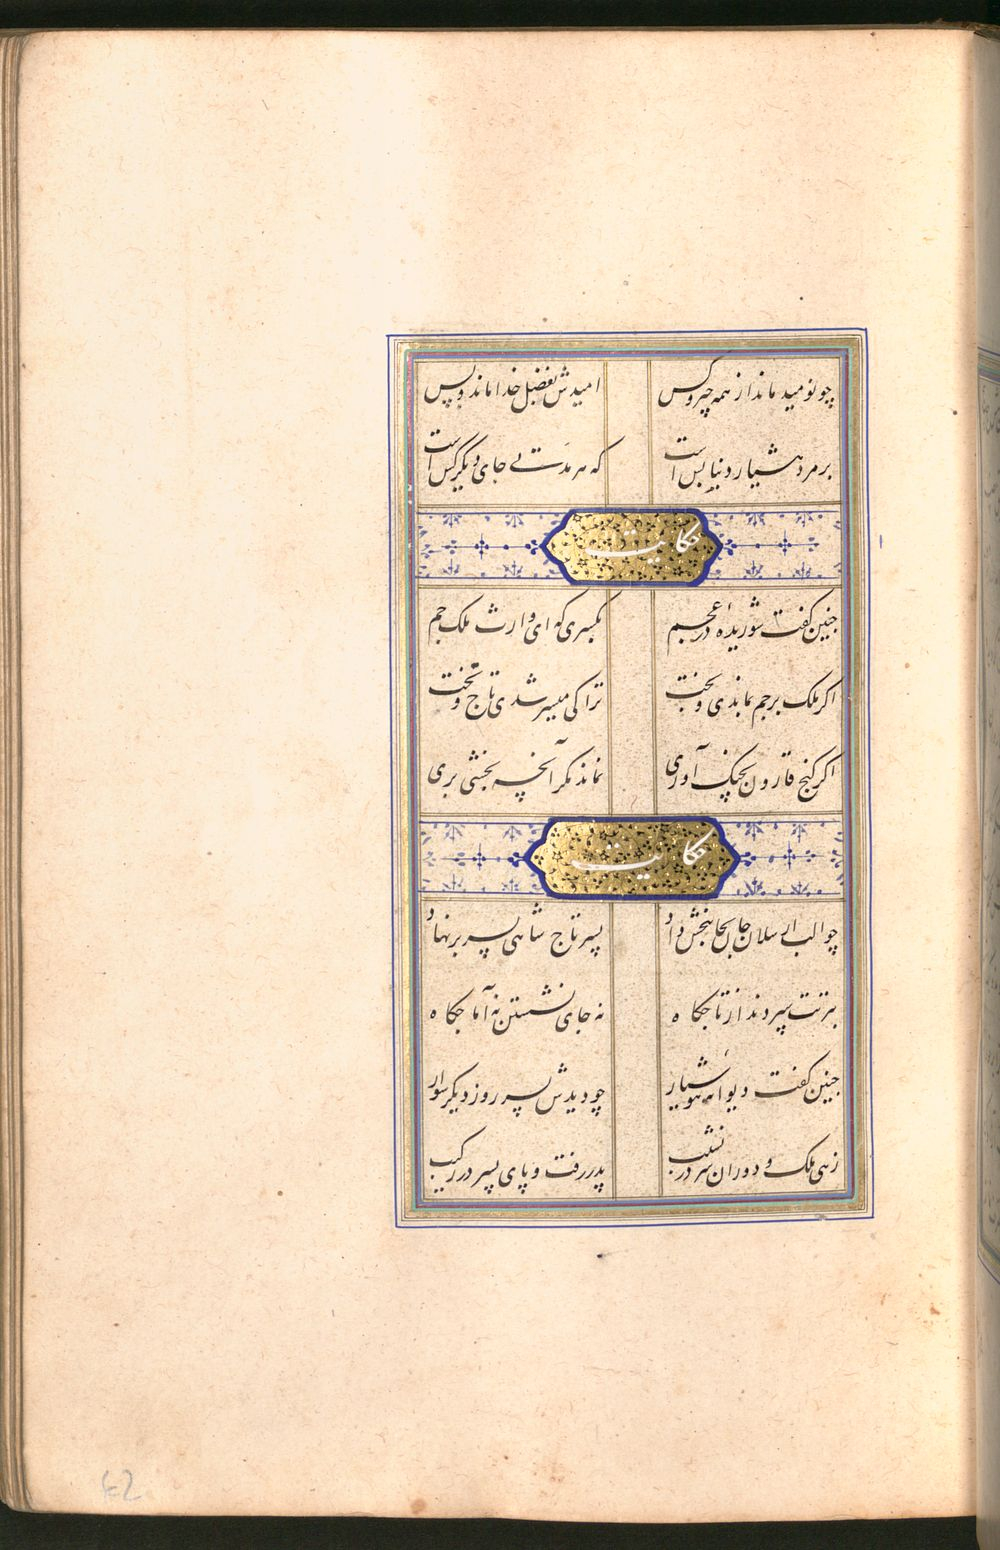 چو نومید ماند از همه چیز و کس امیدش بفضل خدا ماند و بس
بر مرد هشیار دنیا بس است که هر مدتی جای دیگر کس است
حکایت
چنین گفت شوریده در عجم بکسری که ای وارث ملک جم
اگر ملک بر جم بماندی و بخت ترا کی میسر شدی تاج و تخت
اگر گنج قارون بچنگ آوری نماند مگر آنچه بخشی بری
حکایت
چو الب ارسلان جان بجانبخش داد پسر تاج شاهی بسر بر نهاد
بتربت سپردند از تاجگاه نه جای نشستن نه آماجگاه
چنین گفت دیوانه هوشیار چو دیدش پسر روز دیگر سوار
زهی ملک و دوران سر در نشیب پدر رفت و پای پسر در رکیب
42